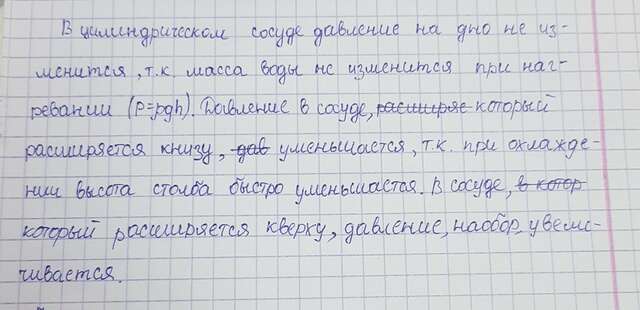 В цилиндрическом сосуде давление на дно не из-
менится, т.к. масса воды не изменится при наг-
ревании (P=ρgh). Давление в сосуде, расширяе который
расширяется книзу, дав уменьшается, т.к. при охлажде-
нии высота столба быстро уменьшается. В сосуде, в котор
который расширяется кверху, давление, наобор. увели-
чивается.